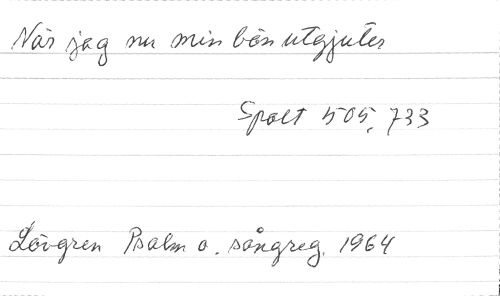 När jag nu min bön utgjuter
Spalt 505, 733
Lövgren Psalm o. sångreg. 1964